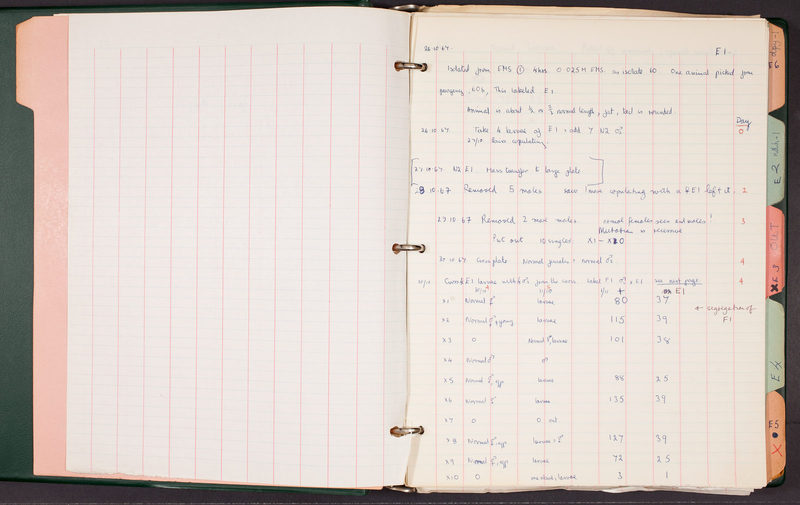 26.10.67. E1.
Isolated from EMS ① 4hrs 0.025M EMS as isolate 60. One animal picked from
progeny, 60b, This labeled E1.
Animal is about ½ or ⅔ normal length, fat, tail is rounded.
Day
26.10.67. Take 4 larvae of E1 + add 7 N2 ♂ 0
27/10 Saw copulating
[27.10.67 N2 E1 Mass transfer to large plate]
28.10.67 Removed 5 males saw 1 more copulating with a E1 left it. 2
29.10.67 Removed 2 more males normal females seen and males! 3
Mutation is recessive
Put out 10 singles X1 – X10
30.10.67 Cross plate Normal females + normal ♂. 4
30/10 Cross E1 larvae with ♂ from the cross Label F1 ♂ x E1 see next page 4
+ E1
X1 Normal larvae 80 37
+ segregation of
F1
X2 Normal + young larvae 115 39
X3 0 Normal larvae 101 38
X4 Normal ♂ ♂
X5 Normal, eggs larvae 88 25
X6 Normal larvae 135 39
X7 0 0 out
X8 Normal, eggs larvae + 127 39
X9 Normal, eggs larvae 72 25
X10 0 larvae 3 1
dpy-1
E6
E2
E3 OUT
E4
E5
X